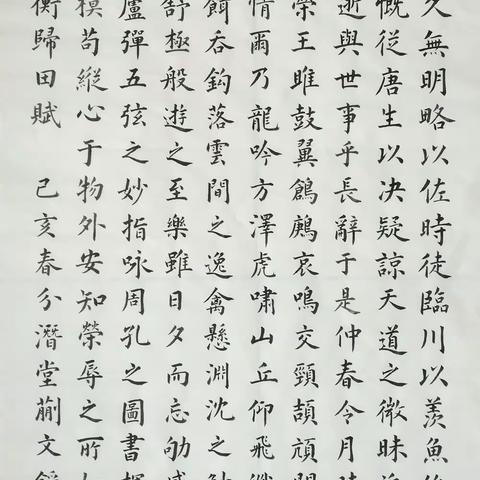 久無明略以佐時徒臨川以羨魚
慨從唐生以决疑諒天道之微昧
逝與世事乎長辭于是仲春令月時
榮王雎鼓翼鶬鶊哀鳴交頸頡頏關
情爾乃龍吟方澤虎嘯山丘仰飛纖
餌吞鈎落雲間之逸禽懸淵沈之
舒極般遊之至樂雖日夕而忘劬感
廬彈五弦之妙指咏周孔之圖書揮
模苟縱心于物外安知榮辱之所
衡歸田賦 己亥春分潛堂蒯文